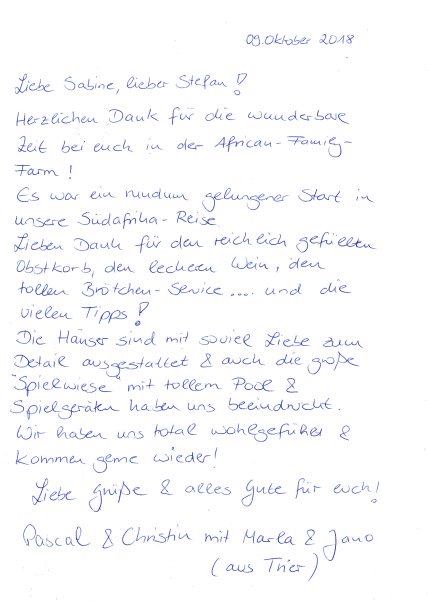 09. Oktober 2018
Liebe Sabine, lieber Stefan!
Herzlichen Dank für die wunderbare
Zeit bei euch in der African-Family-
Farm!
Es war ein rundum gelungener Start in
unsere Südafrika-Reise.
Lieben Dank für den reichlich gefüllten
Obstkorb, den leckeren Wein, den
tollen Brötchen-Service.... und die
vielen Tipps!
Die Häuser sind mit soviel Liebe zum
Detail ausgestattet & auch die große
"Spielwiese" mit tollem Pool &
Spielgeräten haben uns beeindruckt.
Wir haben uns total wohlgefühlt &
kommen gerne wieder!
Liebe Grüße & alles Gute für euch!
Pascal & Christin mit Marla & Jano
(aus Trier)